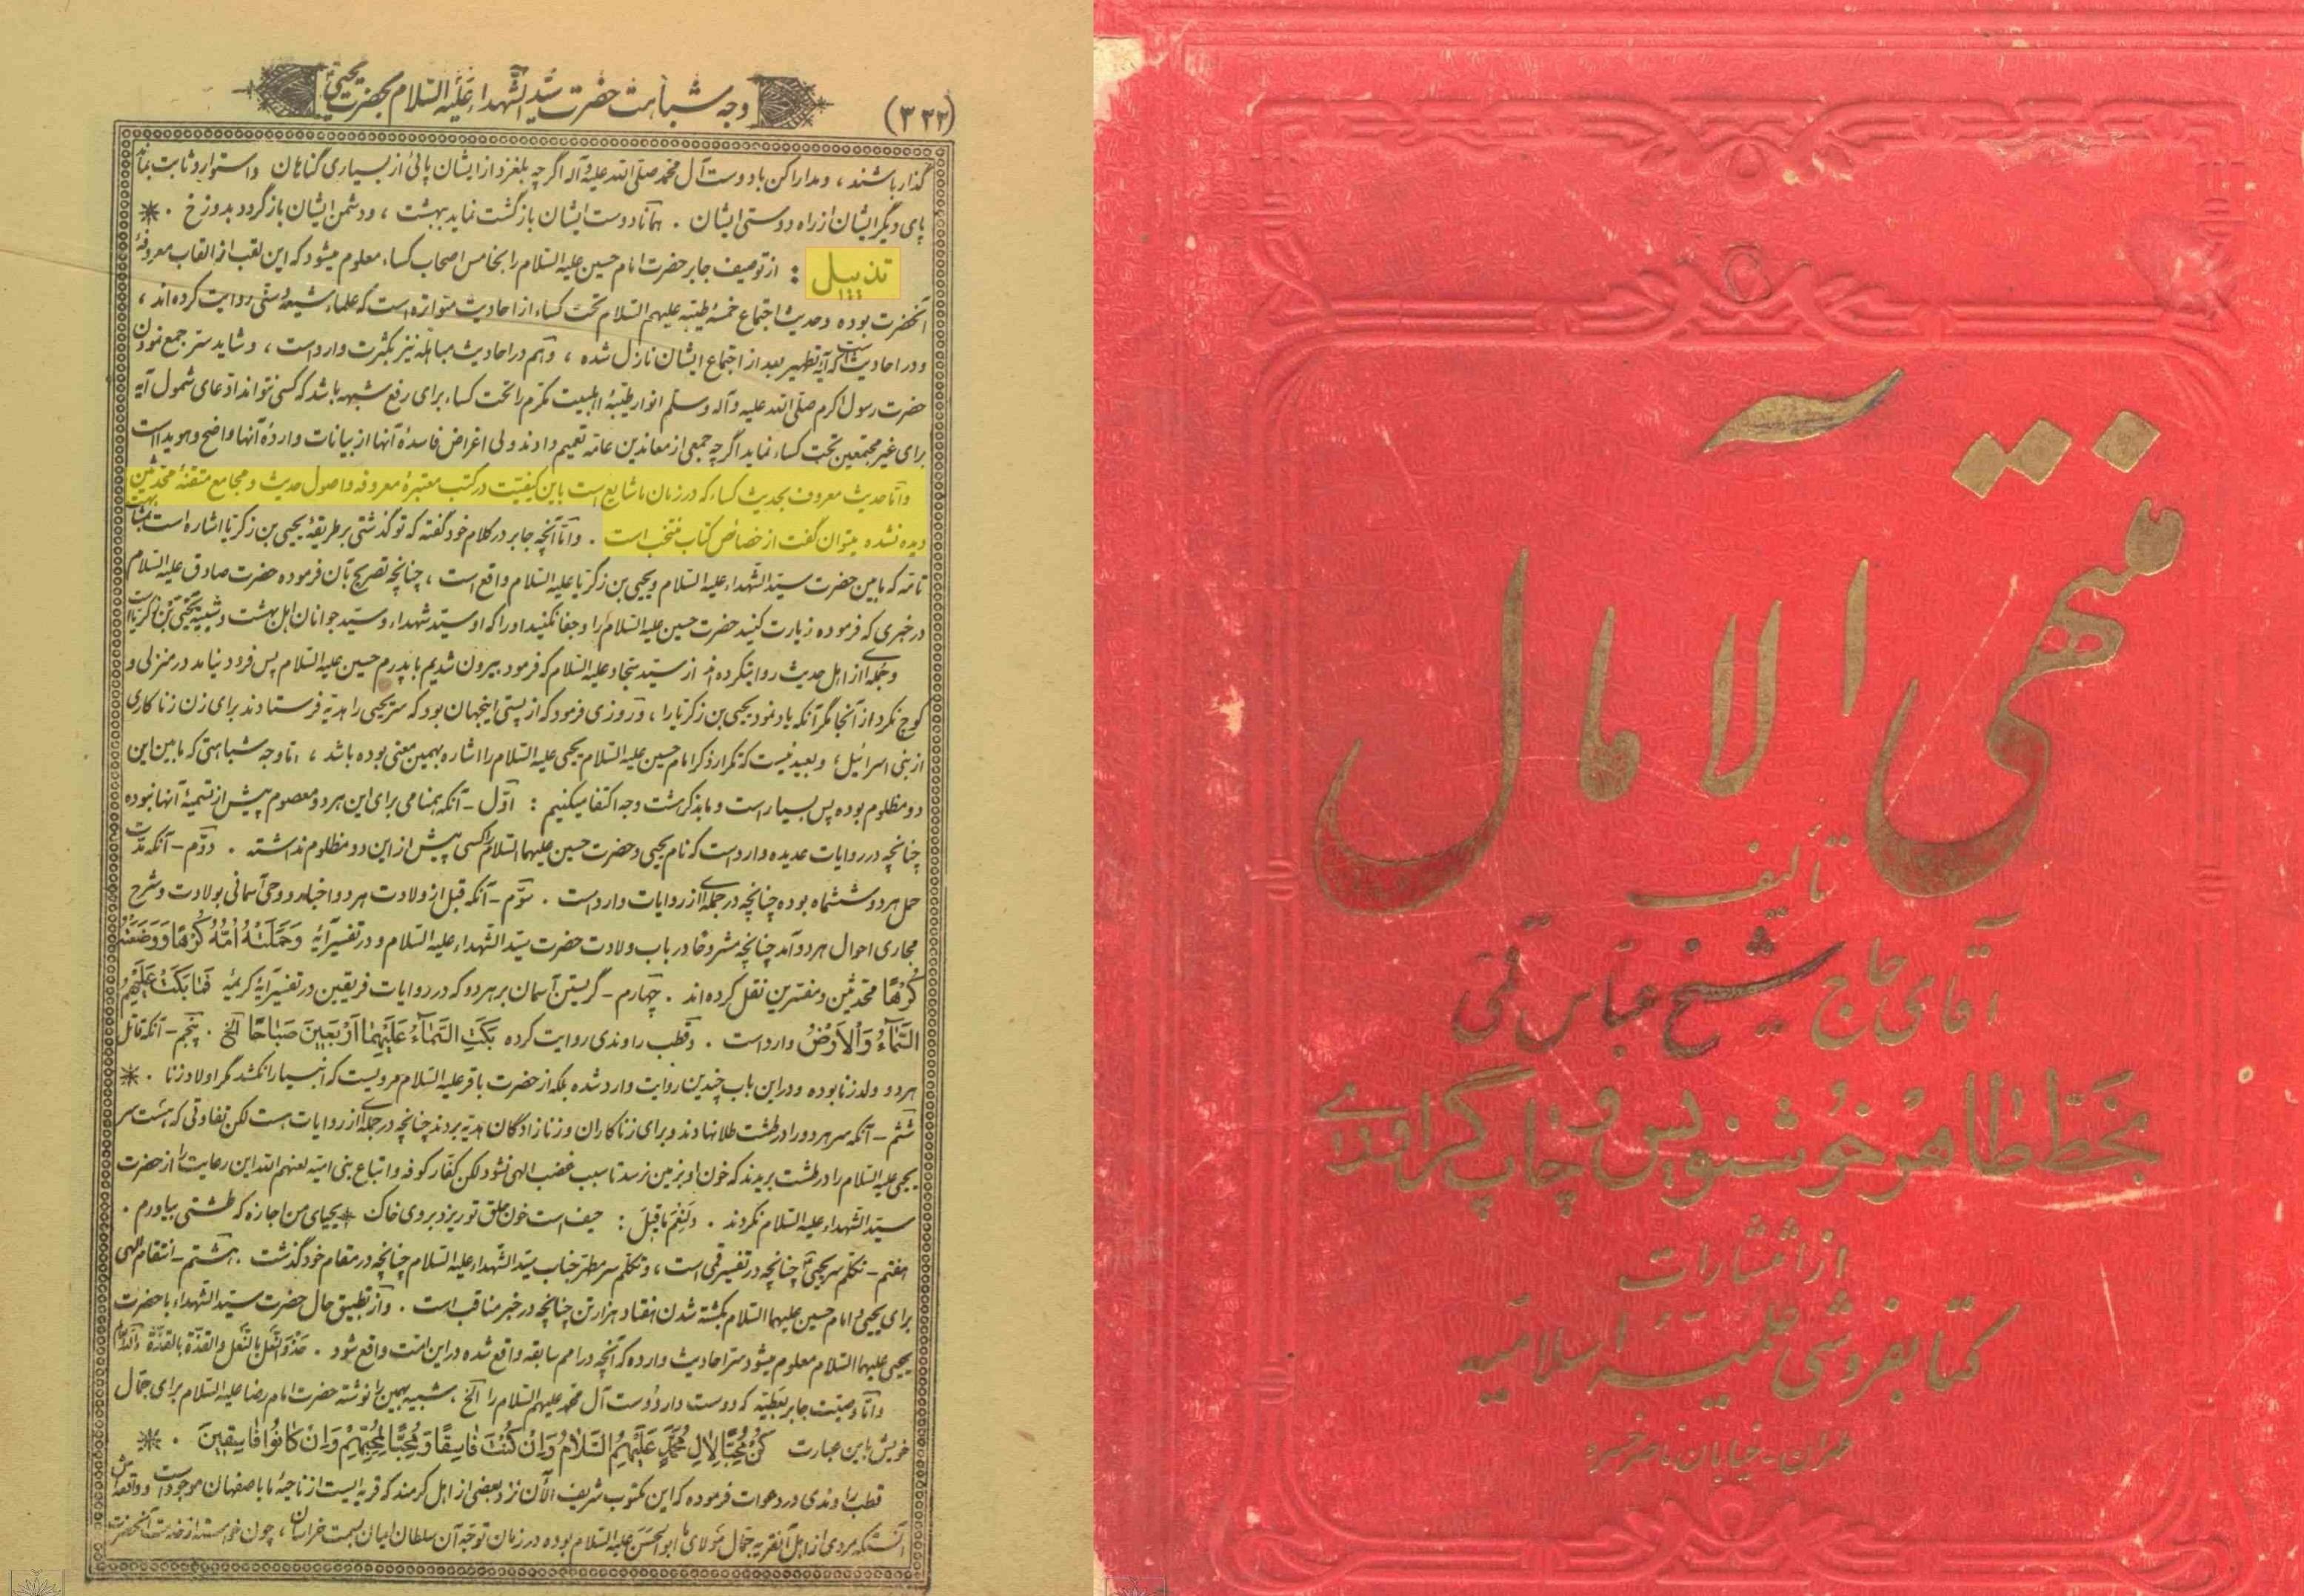 (۳۲۲)
وجه شباهت حضرت سیّد الشّهداء علیه السّلام بحضرت یحیی
گذار باشند، و مدارا کن با دوست آل محمّد صلّی الله علیه و آله اگر چه بلغزد از ایشان پائی از بسیاری گناهان و استوار و ثابت بماند
پای دیگر ایشان از راه دوستی ایشان . همانا دوست ایشان بازگشت نماید ببهشت ، و دشمن ایشان بازگردد بدوزخ . *
تذییل : از توصیف جابر حضرت امام حسین علیه السّلام را بخامس اصحاب کساء معلوم میشود که این لقب از القاب معروفهٔ
آنحضرت بوده و حدیث اجتماع خمسهٔ طیّبه علیهم السّلام تحت کساء از احادیث متواتره است که علماء شیعه و سنّی روایت کرده‌اند ،
و در احادیث است که آیهٔ تطهیر بعد از اجتماع ایشان نازل شده ، و هم در احادیث مباهله نیز بکثرت وارد است ، و شاید سرّ جمع نمودن
حضرت رسول اکرم صلّی الله علیه و آله و سلّم انوار طیّبهٔ اهلبیت مکرّم را تحت کساء برای رفع شبهه باشد که کسی نتواند ادّعای شمول آیه
برای غیر مجتمعین تحت کساء نماید اگر چه جمعی از معاندین عامّه تعمیم دادند ولی اغراض فاسدهٔ آنها از بیانات واردهٔ آنها واضح و هویدا است
و امّا حدیث معروف بحدیث کساء که در زمان ما شایع است باین کیفیّت در کتب معتبرهٔ معروفه و اصول حدیث و مجامع متقنهٔ محدّثین
دیده نشده میتوان گفت از خصائص کتاب منتخب است . و امّا آنچه جابر در کلام خود گفته که تو گذشتی بر طریقهٔ یحیی بن زکریّا اشاره است بمشابهت
تامّه که مابین حضرت سیّد الشّهداء علیه السّلام و یحیی بن زکریّا علیه السّلام واقع است ، چنانچه تصریح بآن فرموده حضرت صادق علیه السّلام
در خبری که فرموده زیارت کنید حضرت حسین علیه السّلام را و جفا نکنید او را که او سیّد شهداء و سیّد جوانان اهل بهشت و شبیه یحیی بن زکریّا است
و جمله‌ای از اهل حدیث روایت کرده‌اند از سیّد سجّاد علیه السّلام که فرمود بیرون شدیم با پدرم حسین علیه السّلام پس فرود نیامد در منزلی و
کوچ نکرد از آنجا مگر آنکه یاد نمود یحیی بن زکریّا را ، و روزی فرمود که از پستی اینجهان بود که سر یحیی را هدیّه فرستادند برای زن زناکاری
از بنی اسرائیل؛ و بعید نیست که تکرار ذکر امام حسین علیه السّلام یحیی علیه السّلام را اشاره بهمین معنی بوده باشد ، امّا وجه شباهتی که مابین این
دو مظلوم بوده پس بسیار است و ما بذکر هشت وجه اکتفا میکنیم : اوّل - آنکه همنامی برای این هر دو معصوم پیش از تسمیهٔ آنها نبوده
چنانچه در روایات عدیده وارد است که نام یحیی و حضرت حسین علیهما السّلام را کسی پیش از این دو مظلوم نداشته . دوّم - آنکه مدّت
حمل هر دو ششماه بوده چنانچه در جمله‌ای از روایات وارد است . سوّم - آنکه قبل از ولادت هر دو اخبار و وحی آسمانی بولادت و شرح
مجاری احوال هر دو آمد چنانچه مشروحا در باب ولادت حضرت سیّد الشّهداء علیه السّلام و در تفسیر آیهٔ وَحَمَلَتْهُ اُمُّهُ کُرْهًا وَوَضَعَتْهُ
کُرْهًا محدّثین و مفسّرین نقل کرده‌اند . چهارم - گریستن آسمان بر هر دو که در روایات فریقین در تفسیر آیهٔ کریمهٔ فَمَا بَکَتْ عَلَیْهِمُ
السَّمَاءُ وَالْاَرْضُ وارد است . و قطب راوندی روایت کرده بَکَتِ السَّمَاءُ عَلَیْهِمَا اَرْبَعِینَ صَبَاحًا الخ . پنجم - آنکه قاتل
هر دو ولد زنا بوده و در این باب چندین روایت وارد شده بلکه از حضرت باقر علیه السّلام مرویست که انبیا را نکشد مگر اولاد زنا . *
ششم - آنکه سر هر دو را در طشت طلا نهادند و برای زناکاران و زنازادگان هدیّه بردند چنانچه در جمله‌ای از روایات هست لکن تفاوتی که هست سر
یحیی علیه السّلام را در طشت بریدند که خون او بزمین نرسد تا سبب غضب الهی نشود لکن کفّار کوفه و اتباع بنی امیّه لعنهم الله این رعایت را از حضرت
سیّد الشّهداء علیه السّلام نکردند . وَ لَنِعْمَ ما قیل : حیف است خون حلق تو ریزد بروی خاک * یحیای من اجازه که طشتی بیاورم .
هفتم - تکلّم سر یحیی چنانچه در تفسیر قمّی است ، و تکلّم سر مطهّر جناب سیّد الشّهداء علیه السّلام چنانچه در مقام خود گذشت . هشتم - انتقام الهی
برای یحیی و امام حسین علیهما السّلام بکشته شدن هفتاد هزار تن چنانچه در خبر مناقب است . و از تطبیق حال حضرت سیّد الشّهداء با حضرت
یحیی علیهما السّلام معلوم میشود سرّ احادیث وارده که آنچه در امم سابقه واقع شده در این امّت واقع شود . حذو النّعل بالنّعل و القذّة بالقذّة
و امّا وصیّت جابر بعطیّه که دوست دار دوست آل محمّد علیهم السّلام را الخ ، شبیه بهمین را نوشته حضرت امام رضا علیه السّلام برای جمّال
خویش باین عبارت کُنْ مُحِبًّا لِاٰلِ مُحَمَّدٍ عَلَیْهِمُ السَّلَامُ وَاِنْ کُنْتَ فَاسِقًا وَمُحِبًّا لِمُحِبِّیهِمْ وَاِنْ کَانُوا فَاسِقِینَ . *
قطب راوندی در دعوات فرموده که این مکتوب شریف الآن نزد بعضی از اهل کرمند که قریه‌ایست از ناحیهٔ ما باصفهان موجود است و واقعه‌اش
آنستکه مردی از اهل آنقریه جمّال مولای ما ابو الحسن علیه السّلام بوده در زمان توجّه آن سلطان ایمان بسمت خراسان ، چون خواسته از خدمت آنحضرت
منتهی الآمال
تألیف
آقای حاج شیخ عبّاس قمّی
بخطّ طاهر خوشنویس و چاپ گراوری
از انتشارات
کتابفروشی علمیّهٔ اسلامیّه
طهران - خیابان ناصر خسرو